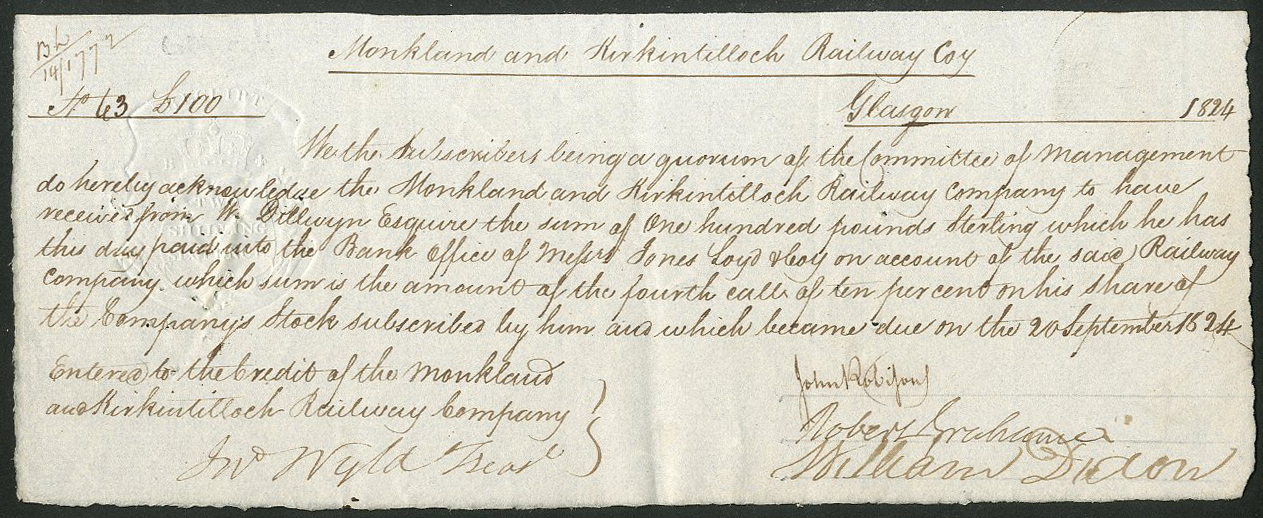 Monkland and Kirkintilloch Railway Coy
No 63 £100 Glasgow 1824
We the Subscribers being a quorum of the Committee of Management
do hereby acknowledge the Monkland and Kirkintilloch Railway Company to have
received from W. Dillwyn Esquire the sum of One hundred pounds Sterling which he has
this day paid into the Bank Office of Messrs Jones Loyd & Coy on account of the said Railway
Company which sum is the amount of the fourth call of ten percent on his share of
the Company's Stock subscribed by him and which became due on the 20 September 1824
Entered to the Credit of the Monkland
and Kirkintilloch Railway Company
Jno Wyld Treasr
John Robison
Robert Grahame
William Dixon
RECEIPT
TWO
SHILLING